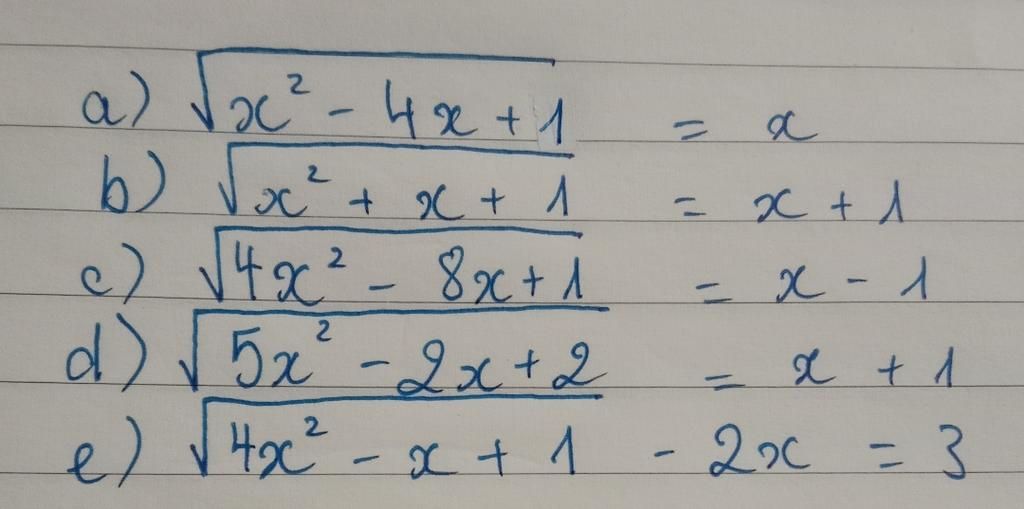 a) √(x² - 4x + 1) = x
b) √(x² + x + 1) = x + 1
c) √(4x² - 8x + 1) = x - 1
d) √(5x² - 2x + 2) = x + 1
e) √(4x² - x + 1) - 2x = 3